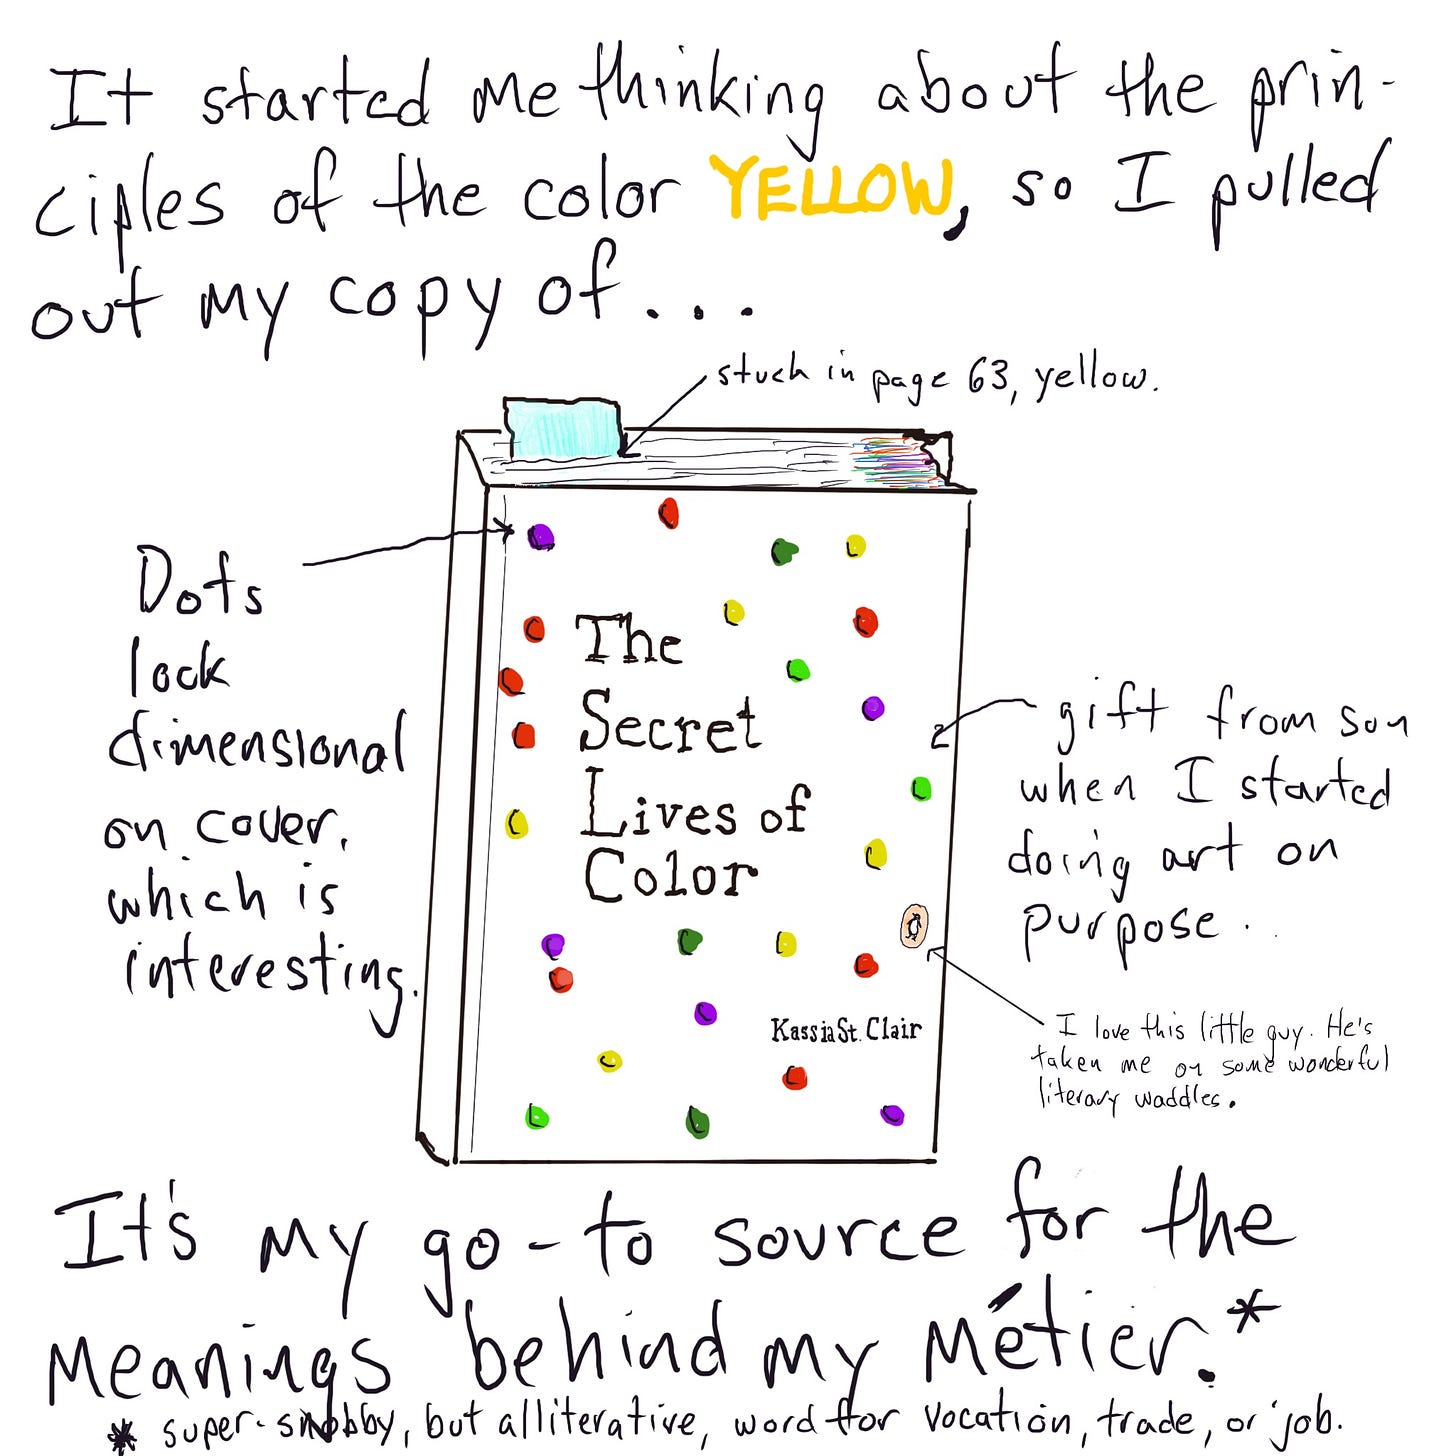 It started me thinking about the prin-
ciples of the color YELLOW, so I pulled
out my copy of...
stuck in page 63, yellow.
Dots
lock
dimensional
on cover,
which is
interesting.
The
Secret
Lives of
Color
Kassia St. Clair
gift from son
when I started
doing art on
purpose..
I love this little guy. He's
taken me on some wonderful
literary waddles.
It's my go-to source for the
meanings behind my métier.*
* super-snobby, but alliterative, word for vocation, trade, or job.